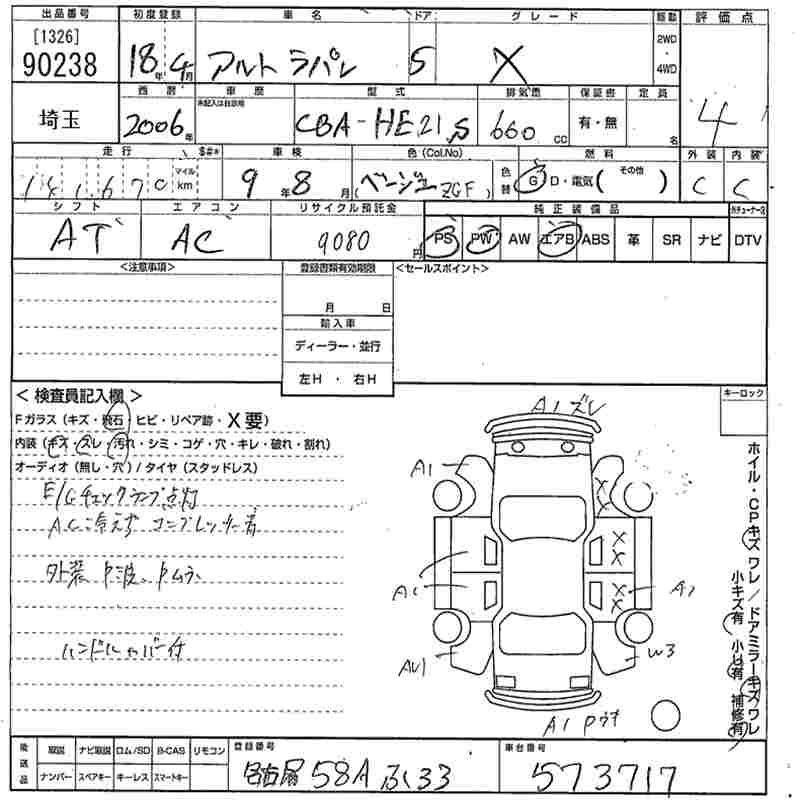 出品番号 初度登録 車名 ドア グレード 駆動 評価点
[1326]
90238 18年 4月 アルト ラパン 5 X 2WD・4WD 4
西暦 車歴 型式 排気量 保証書 定員
未記入は自家用
埼玉 2006年 CBA-HE21S 660cc 有・無 名
走行 車検 色(Col.No) 色替 燃料 外装 内装
141,670 マイル km 9年8月 (ベージュ ZGF) G D・電気( その他 ) C C
シフト エアコン リサイクル預託金 純正装備品
AT AC 9080円 PS PW AW エアB ABS 革 SR ナビ DTV
<注意事項> 登録書類有効期限 <セールスポイント>
月 日
輸入車
ディーラー・並行
左H・右H
<検査員記入欄> キーロック
Fガラス(キズ・飛石・ヒビ・リペア跡・X要)
内装(キズ・スレ・汚れ・シミ・コゲ・穴・キレ・破れ・割れ)
オーディオ(無し・穴)/タイヤ(スタッドレス)
E/Gチェックランプ点灯
AC冷えず コンプレッサー音
外装 P波、Pムラ
ハンドルカバー付
A1ズレ
A1
X
X
X
X
X
X
A1
A1
AU1
W3
A1 Pウキ
ホイル・CPキズワレ/ドアミラーキズワレ
小キズ有 小凹有 補修有
後送品 取説 ナビ取説 ロム/SD B-CAS リモコン 登録番号 車台番号
ナンバー スペアキー キーレス スマートキー 名古屋 58A ふ 33 573717